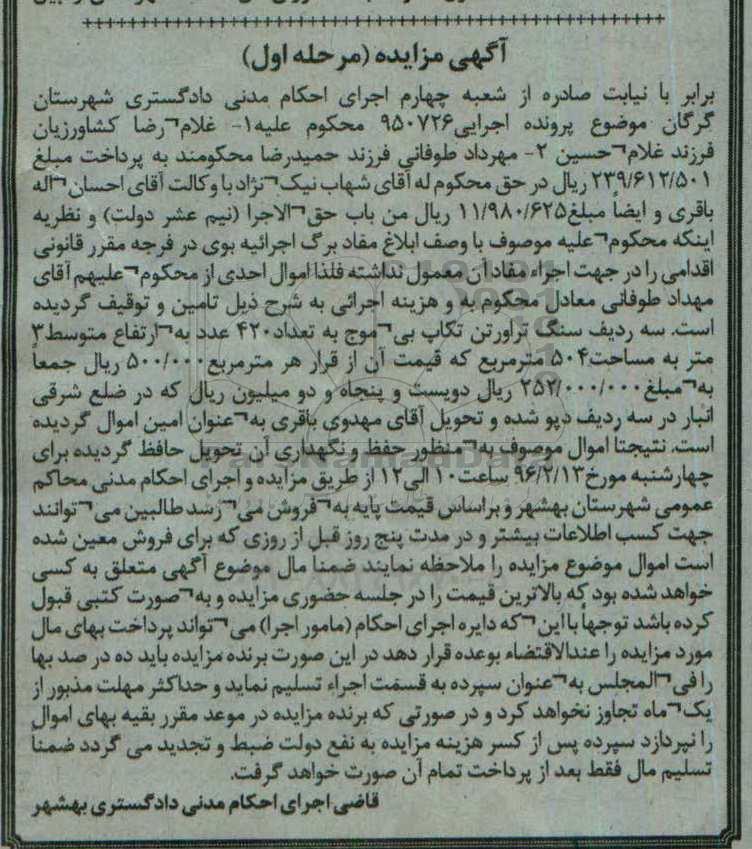 آگهی مزایده (مرحله اول)
برابر با نیابت صادره از شعبه چهارم اجرای احکام مدنی دادگستری شهرستان
گرگان موضوع پرونده اجرایی۹۵۰۷۲۶ محکوم علیه۱- غلام¬رضا کشاورزیان
فرزند غلام¬حسین ۲- مهرداد طوفانی فرزند حمیدرضا محکومند به پرداخت مبلغ
۲۳۹/۶۱۲/۵۰۱ ریال در حق محکوم له آقای شهاب نیک¬نژاد با وکالت آقای احسان¬اله
باقری و ایضاً مبلغ۱۱/۹۸۰/۶۲۵ ریال من باب حق¬الاجرا (نیم عشر دولت) و نظریه
اینکه محکوم¬علیه موصوف با وصف ابلاغ مفاد برگ اجرائیه بوی در فرجه مقرر قانونی
اقدامی را در جهت اجراء مفاد آن معمول نداشته فلذا اموال احدی از محکوم¬علیهم آقای
مهداد طوفانی معادل محکوم به و هزینه اجرائی به شرح ذیل تامین و توقیف گردیده
است. سه ردیف سنگ تراورتن تکاب بی¬موج به تعداد۴۲۰ عدد به¬ارتفاع متوسط۳
متر به مساحت۵۰۴ مترمربع که قیمت آن از قرار هر مترمربع۵۰۰/۰۰۰ ریال جمعاً
به¬مبلغ۲۵۲/۰۰۰/۰۰۰ ریال دویست و پنجاه و دو میلیون ریال که در ضلع شرقی
انبار در سه ردیف دپو شده و تحویل آقای مهدوی باقری به¬عنوان امین اموال گردیده
است. نتیجتاً اموال موصوف به¬منظور حفظ و نگهداری آن تحویل حافظ گردیده برای
چهارشنبه مورخ۹۶/۲/۱۳ ساعت۱۰ الی۱۲ از طریق مزایده و اجرای احکام مدنی محاکم
عمومی شهرستان بهشهر و براساس قیمت پایه به¬فروش می¬رسد طالبین می¬توانند
جهت کسب اطلاعات بیشتر و در مدت پنج روز قبل از روزی که برای فروش معین شده
است اموال موضوع مزایده را ملاحظه نمایند ضمنا مال موضوع آگهی متعلق به کسی
خواهد شده بود که بالاترین قیمت را در جلسه حضوری مزایده و به¬صورت کتبی قبول
کرده باشد توجهاً با این¬که دایره اجرای احکام (مامور اجرا) می¬تواند پرداخت بهای مال
مورد مزایده را عندالاقتضاء بوعده قرار دهد در این صورت برنده مزایده باید ده در صد بها
را فی¬المجلس به¬عنوان سپرده به قسمت اجراء تسلیم نماید و حداکثر مهلت مذبور از
یک¬ماه تجاوز نخواهد کرد و در صورتی که برنده مزایده در موعد مقرر بقیه بهای اموال
را نپردازد سپرده پس از کسر هزینه مزایده به نفع دولت ضبط و تجدید می گردد ضمناً
تسلیم مال فقط بعد از پرداخت تمام آن صورت خواهد گرفت.
قاضی اجرای احکام مدنی دادگستری بهشهر